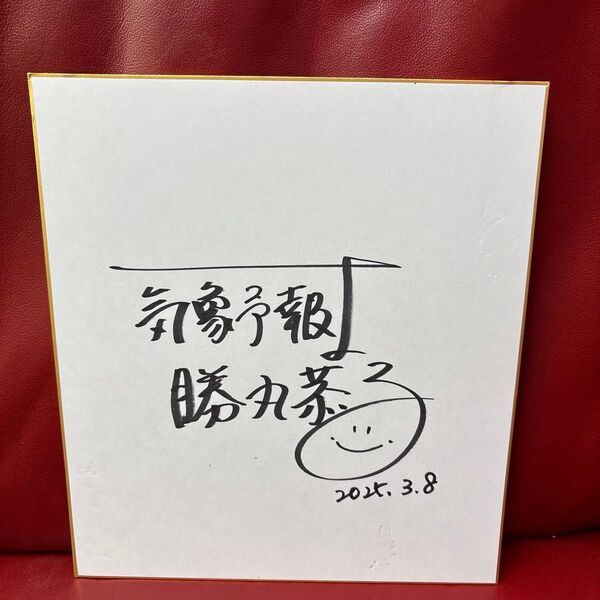 気象予報士
勝丸恭子
2025.3.8